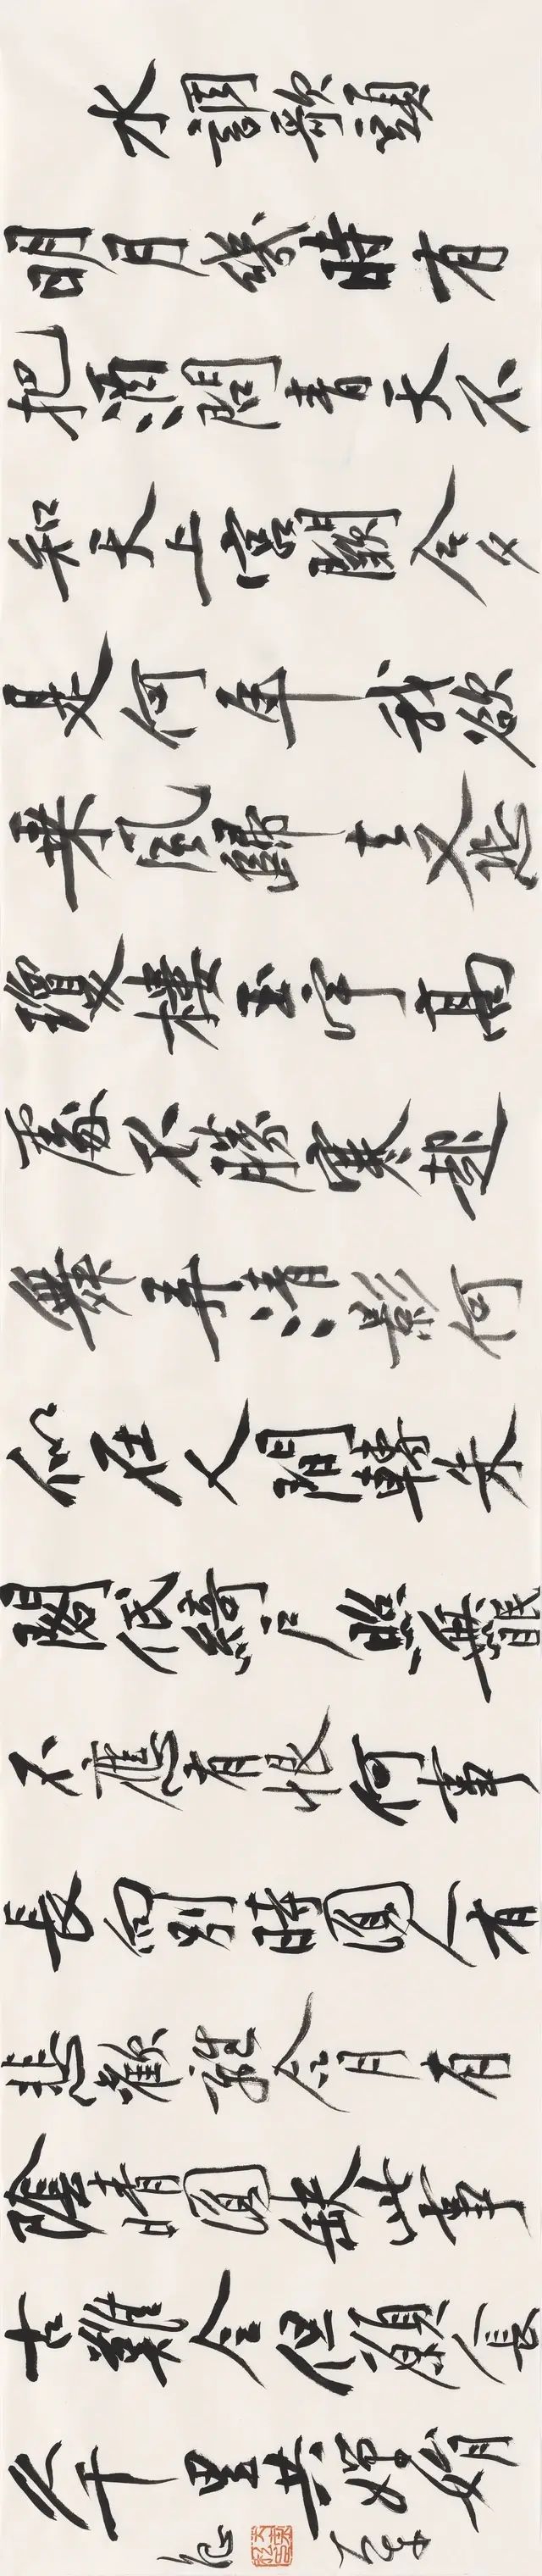 水調歌頭
明月幾時有
把酒問青天不
知天上宮闕今夕
是何年我欲
乘風歸去又恐
瓊樓玉宇高
處不勝寒起
舞弄清影何
似在人間轉朱
閣低綺戶照無眠
不應有恨何事
長向別時圓人有
悲歡離合月有
陰晴圓缺此事
古難全但願人長
久千里共嬋娟